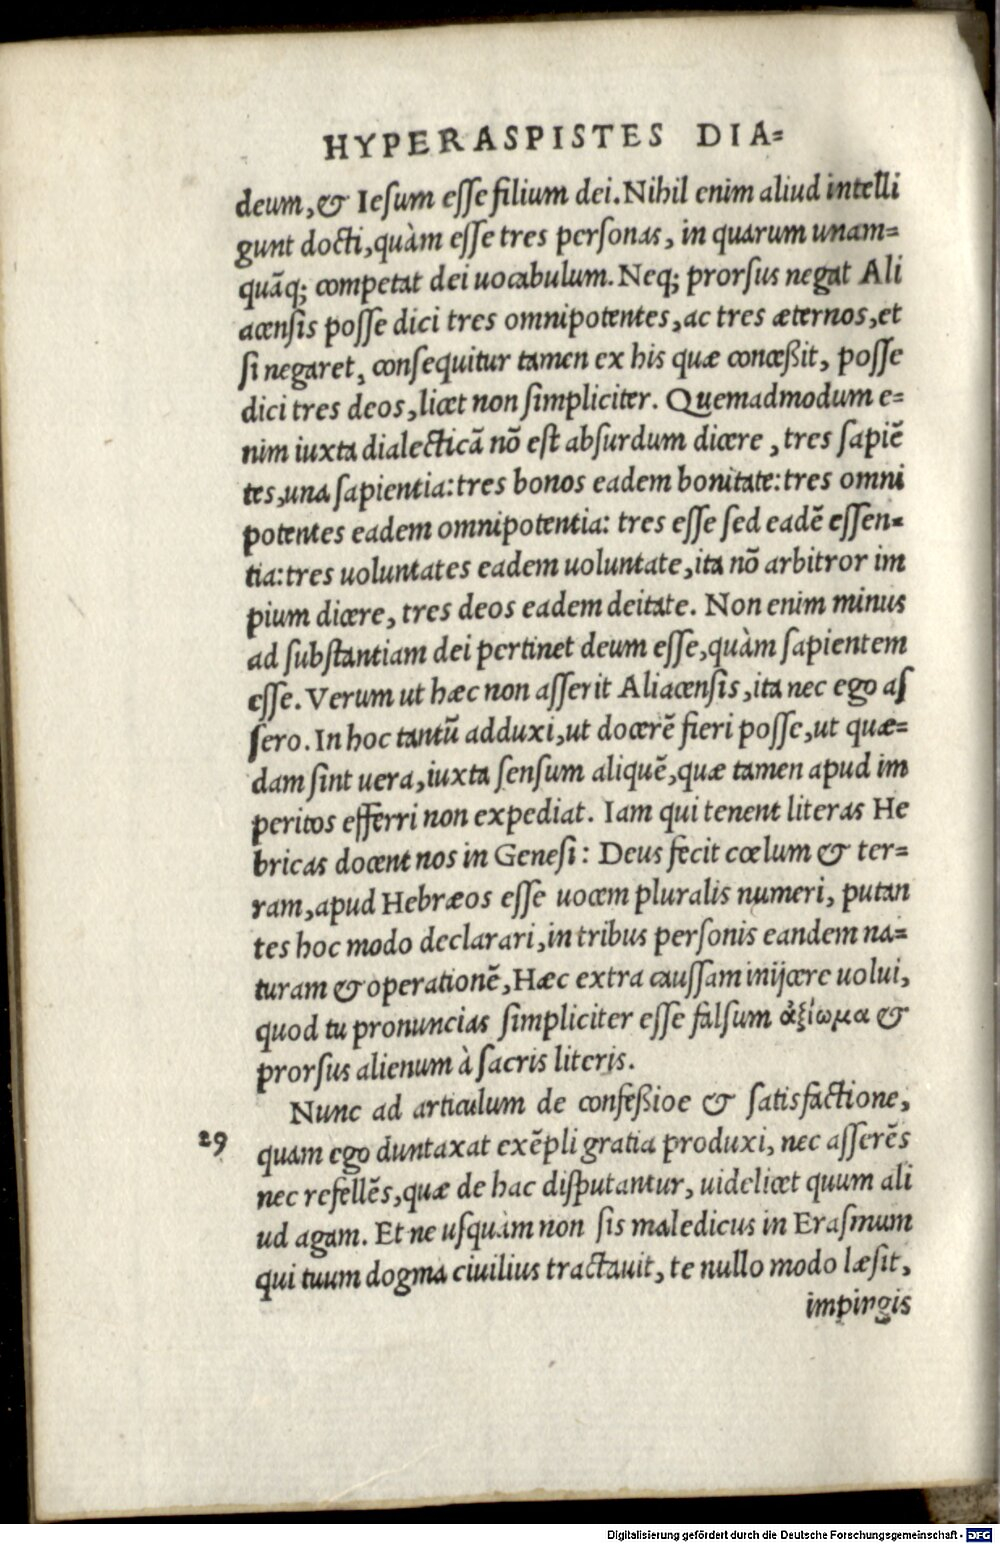 HYPERASPISTES DIA=
deum,& Iesum esse filium dei. Nihil enim aliud intelli
gunt docti,quàm esse tres personas, in quarum unam=
quãq; competat dei uocabulum. Neq; prorsus negat Ali
acensis posse dici tres omnipotentes,ac tres æternos,et
si negaret, consequitur tamen ex his quæ conceßit, posse
dici tres deos,licet non simpliciter. Quemadmodum e=
nim iuxta dialecticã nõ est absurdum dicere , tres sapiẽ
tes,una sapientia:tres bonos eadem bonitate:tres omni
potentes eadem omnipotentia: tres esse sed eadẽ essen=
tia:tres uoluntates eadem uoluntate,ita nõ arbitror im
pium dicere, tres deos eadem deitate. Non enim minus
ad substantiam dei pertinet deum esse,quàm sapientem
esse. Verum ut hæc non asserit Aliacensis,ita nec ego as
sero. In hoc tantũ adduxi,ut docerẽ fieri posse,ut quæ=
dam sint uera,iuxta sensum aliquẽ,quæ tamen apud im
peritos efferri non expediat. Iam qui tenent literas He
bricas docent nos in Genesi: Deus fecit cœlum & ter=
ram,apud Hebræos esse uocem pluralis numeri, putan
tes hoc modo declarari,in tribus personis eandem na=
turam & operationẽ,Hæc extra caussam inijcere uolui,
quod tu pronuncias simpliciter esse falsum ἀξίωμα &
prorsus alienum à sacris literis.
Nunc ad articulum de confeßioe & satisfactione,
29 quam ego duntaxat exẽpli gratia produxi, nec asserẽs
nec refellẽs,quæ de hac disputantur, uidelicet quum ali
ud agam. Et ne usquàm non sis maledicus in Erasmum
qui tuum dogma ciuilius tractauit, te nullo modo læsit,
impingis
Digitalisierung gefördert durch die Deutsche Forschungsgemeinschaft - DFG